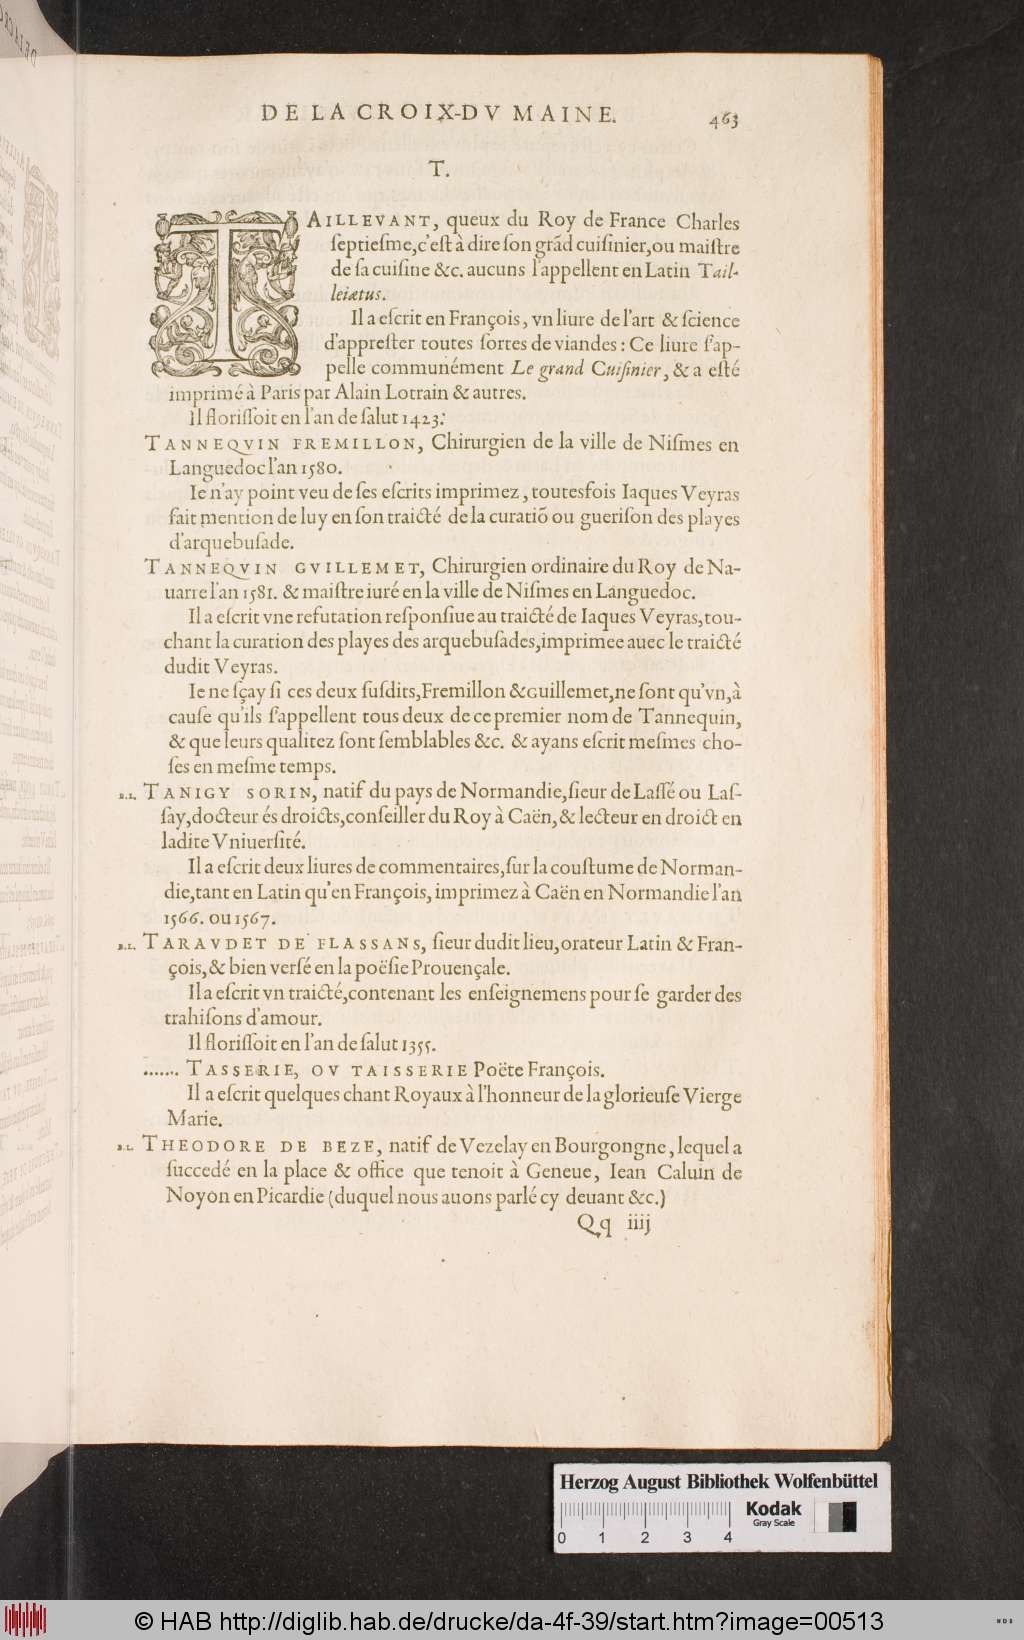 DE LA CROIX-DV MAINE. 463
T.
TAILLEVANT, queux du Roy de France Charles
ſeptieſme,c'eſt à dire ſon grãd cuiſinier,ou maiſtre
de ſa cuiſine &c. aucuns l'appellent en Latin Tail-
leiætus.
Il a eſcrit en François, vn liure de l'art & ſcience
d'appreſter toutes ſortes de viandes : Ce liure ſ'ap-
pelle communément Le grand Cuiſinier, & a eſté
imprimé à Paris par Alain Lotrain & autres.
Il floriſſoit en l'an de ſalut 1423.
TANNEQVIN FREMILLON, Chirurgien de la ville de Niſmes en
Languedoc l'an 1580.
Ie n'ay point veu de ſes eſcrits imprimez, toutesfois Iaques Veyras
fait mention de luy en ſon traicté de la curatiõ ou gueriſon des playes
d'arquebuſade.
TANNEQVIN GVILLEMET, Chirurgien ordinaire du Roy de Na-
uarre l'an 1581. & maiſtre iuré en la ville de Niſmes en Languedoc.
Il a eſcrit vne refutation reſponſiue au traicté de Iaques Veyras, tou-
chant la curation des playes des arquebuſades,imprimee auec le traicté
dudit Veyras.
Ie ne ſçay ſi ces deux ſuſdits,Fremillon &Guillemet,ne ſont qu'vn,à
cauſe qu'ils ſ'appellent tous deux de ce premier nom de Tannequin,
& que leurs qualitez ſont ſemblables &c. & ayans eſcrit meſmes cho-
ſes en meſme temps.
B.L. TANIGY SORIN, natif du pays de Normandie,ſieur de Laſſé ou Laſ-
ſay,docteur és droicts,conſeiller du Roy à Caën, & lecteur en droict en
ladite Vniuerſité.
Il a eſcrit deux liures de commentaires,ſur la couſtume de Norman-
die,tant en Latin qu'en François, imprimez à Caën en Normandie l'an
1566. ou 1567.
B.L. TARAVDET DE FLASSANS, ſieur dudit lieu,orateur Latin & Fran-
çois, & bien verſé en la poëſie Prouençale.
Il a eſcrit vn traicté,contenant les enſeignemens pour ſe garder des
trahiſons d'amour.
Il floriſſoit en l'an de ſalut 1355.
....... TASSERIE, OV TAISSERIE Poëte François.
Il a eſcrit quelques chant Royaux à l'honneur de la glorieuſe Vierge
Marie.
B.L. THEODORE DE BEZE, natif de Vezelay en Bourgongne, lequel a
ſuccedé en la place & office que tenoit à Geneue, Iean Caluin de
Noyon en Picardie (duquel nous auons parlé cy deuant &c.)
Qq iiij
Herzog August Bibliothek Wolfenbüttel
0 1 2 3 4
Kodak
Gray Scale
© HAB http://diglib.hab.de/drucke/da-4f-39/start.htm?image=00513